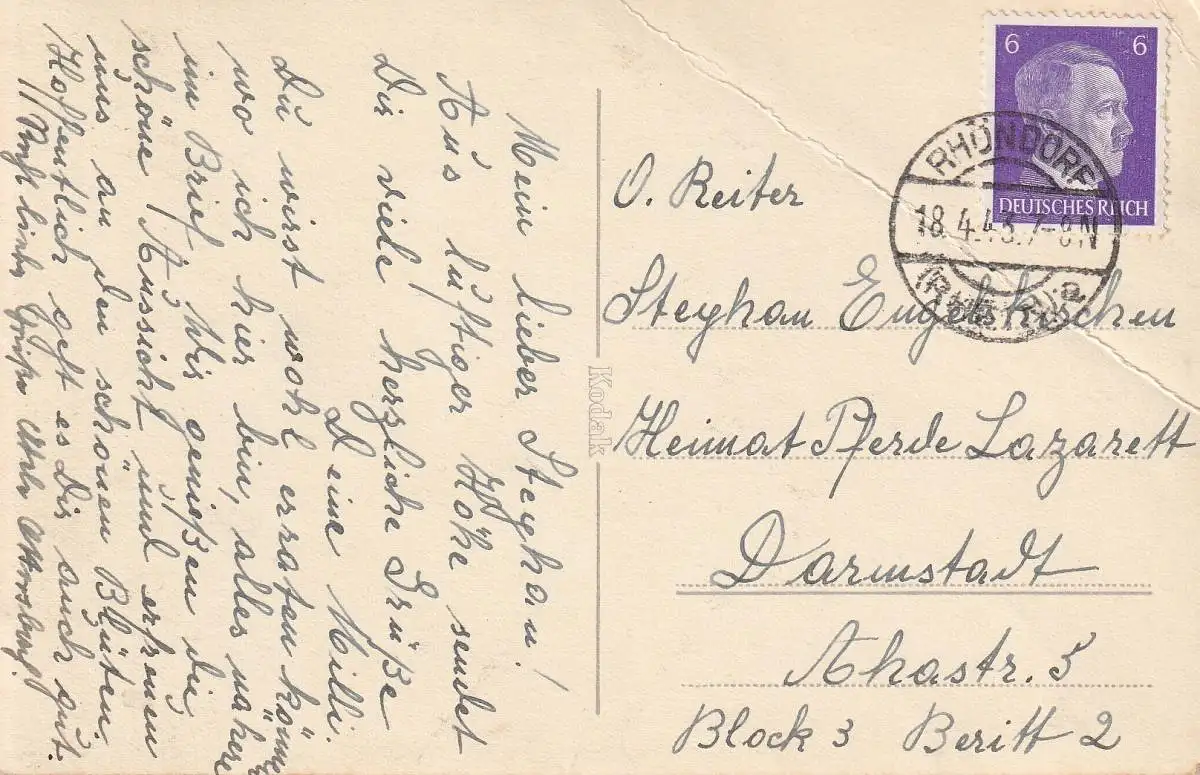 Mein lieber Stephan!
Aus luftiger Höhe sendet
Dir viele herzliche Grüße
Deine Milli.
Du wirst wohl erraten können
wo ich hier bin, alles nähere
im Brief. Wir genießen die
schöne Aussicht und erfreuen
uns an den schönen Blüten.
Hoffentlich geht es Dir auch gut.
Recht liebe Grüße
Kodak
6 6
DEUTSCHES REICH
RHÖNDORF
18.4.43.7-8N
O. Reiter
Stephan Engelskirchen
Heimat Pferde Lazarett
Darmstadt
Ahastr. 5
Block 3 Beritt 2